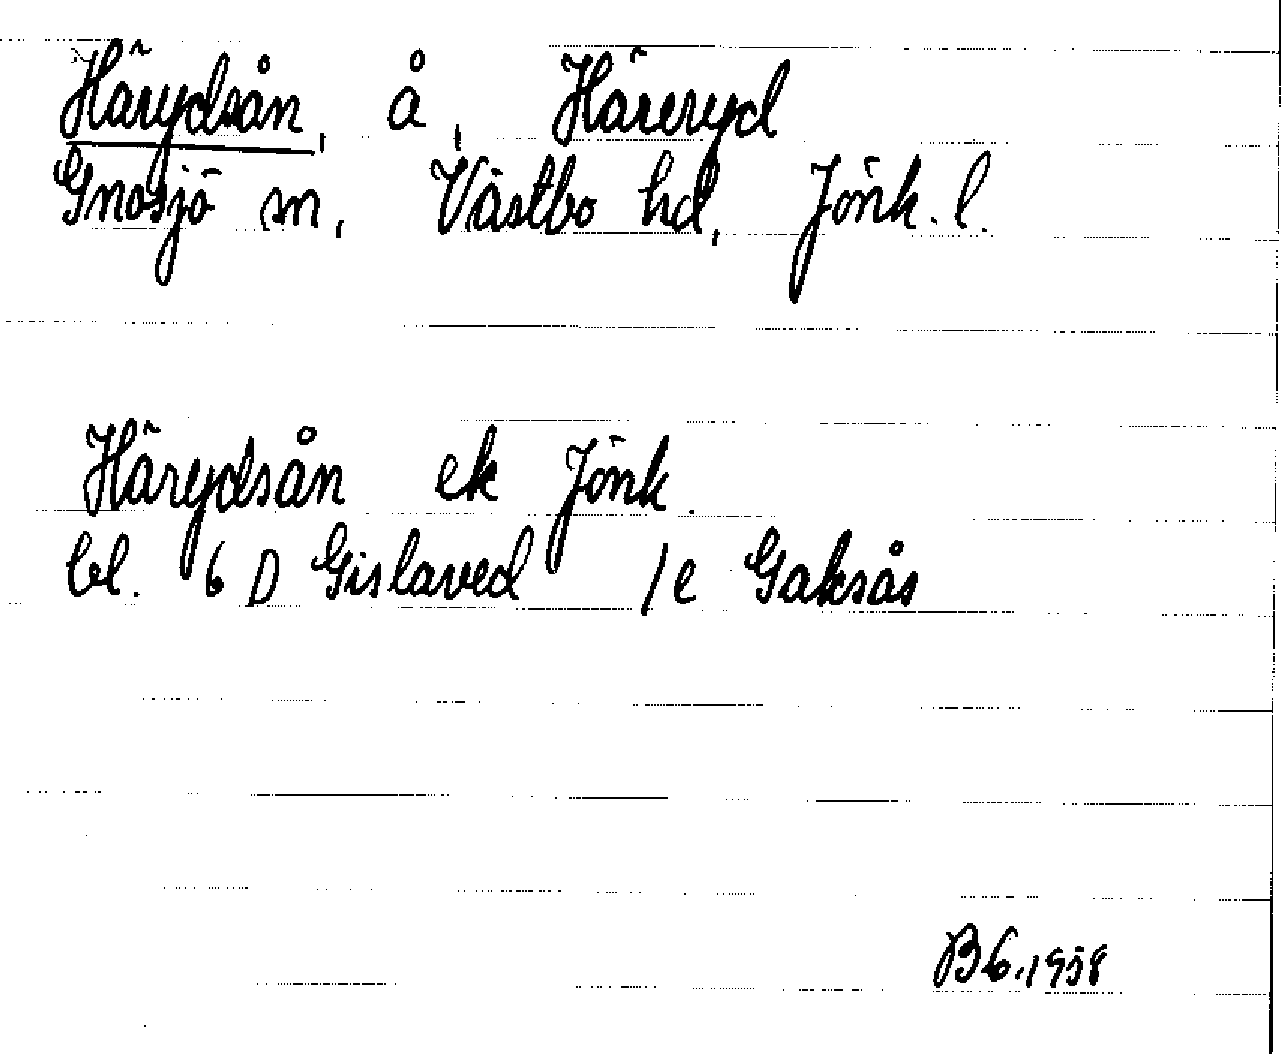 Härydsån, å, Häreryd
Gnosjö sn, Västbo hd, Jönk. l.
Härydsån ek Jönk.
bl. 6 D Gislaved 1e Gaksås
B6.1958